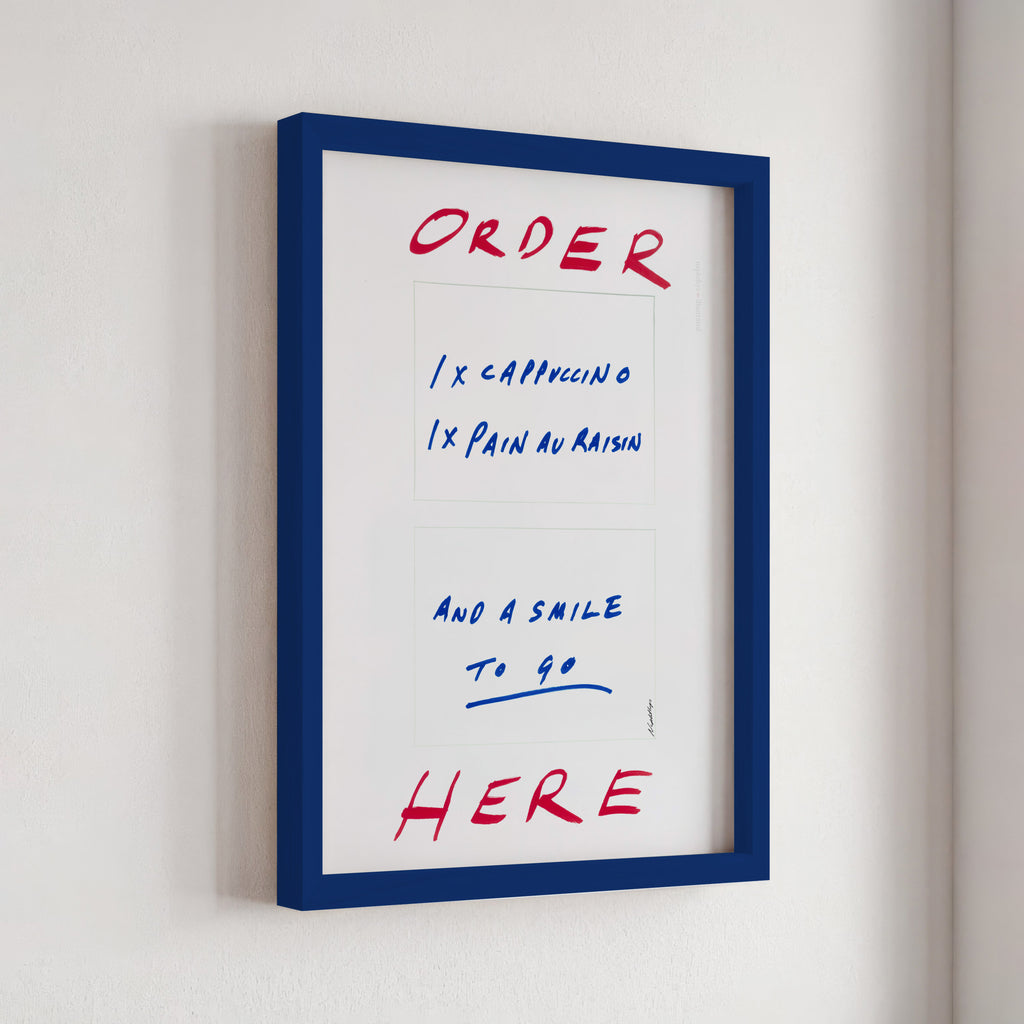 ORDER
1 X CAPPUCCINO
1 X PAIN AU RAISIN
AND A SMILE
TO GO
HERE